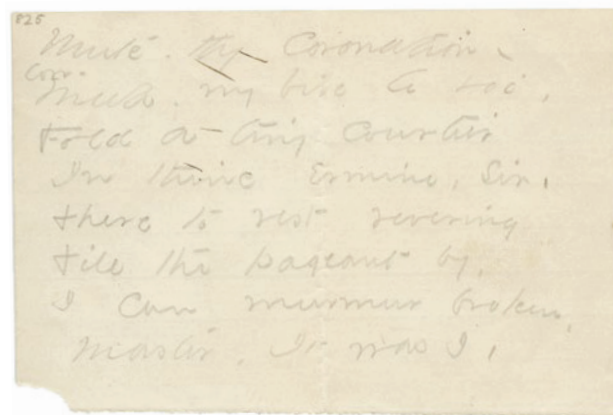 825
Mute - thy Coronation -
Meek - my Vive le roi,
Fold a tiny Courtier
In thine Ermine, Sir,
There to rest revering
Till the pageant by,
I can murmur broken,
Master, It was I,